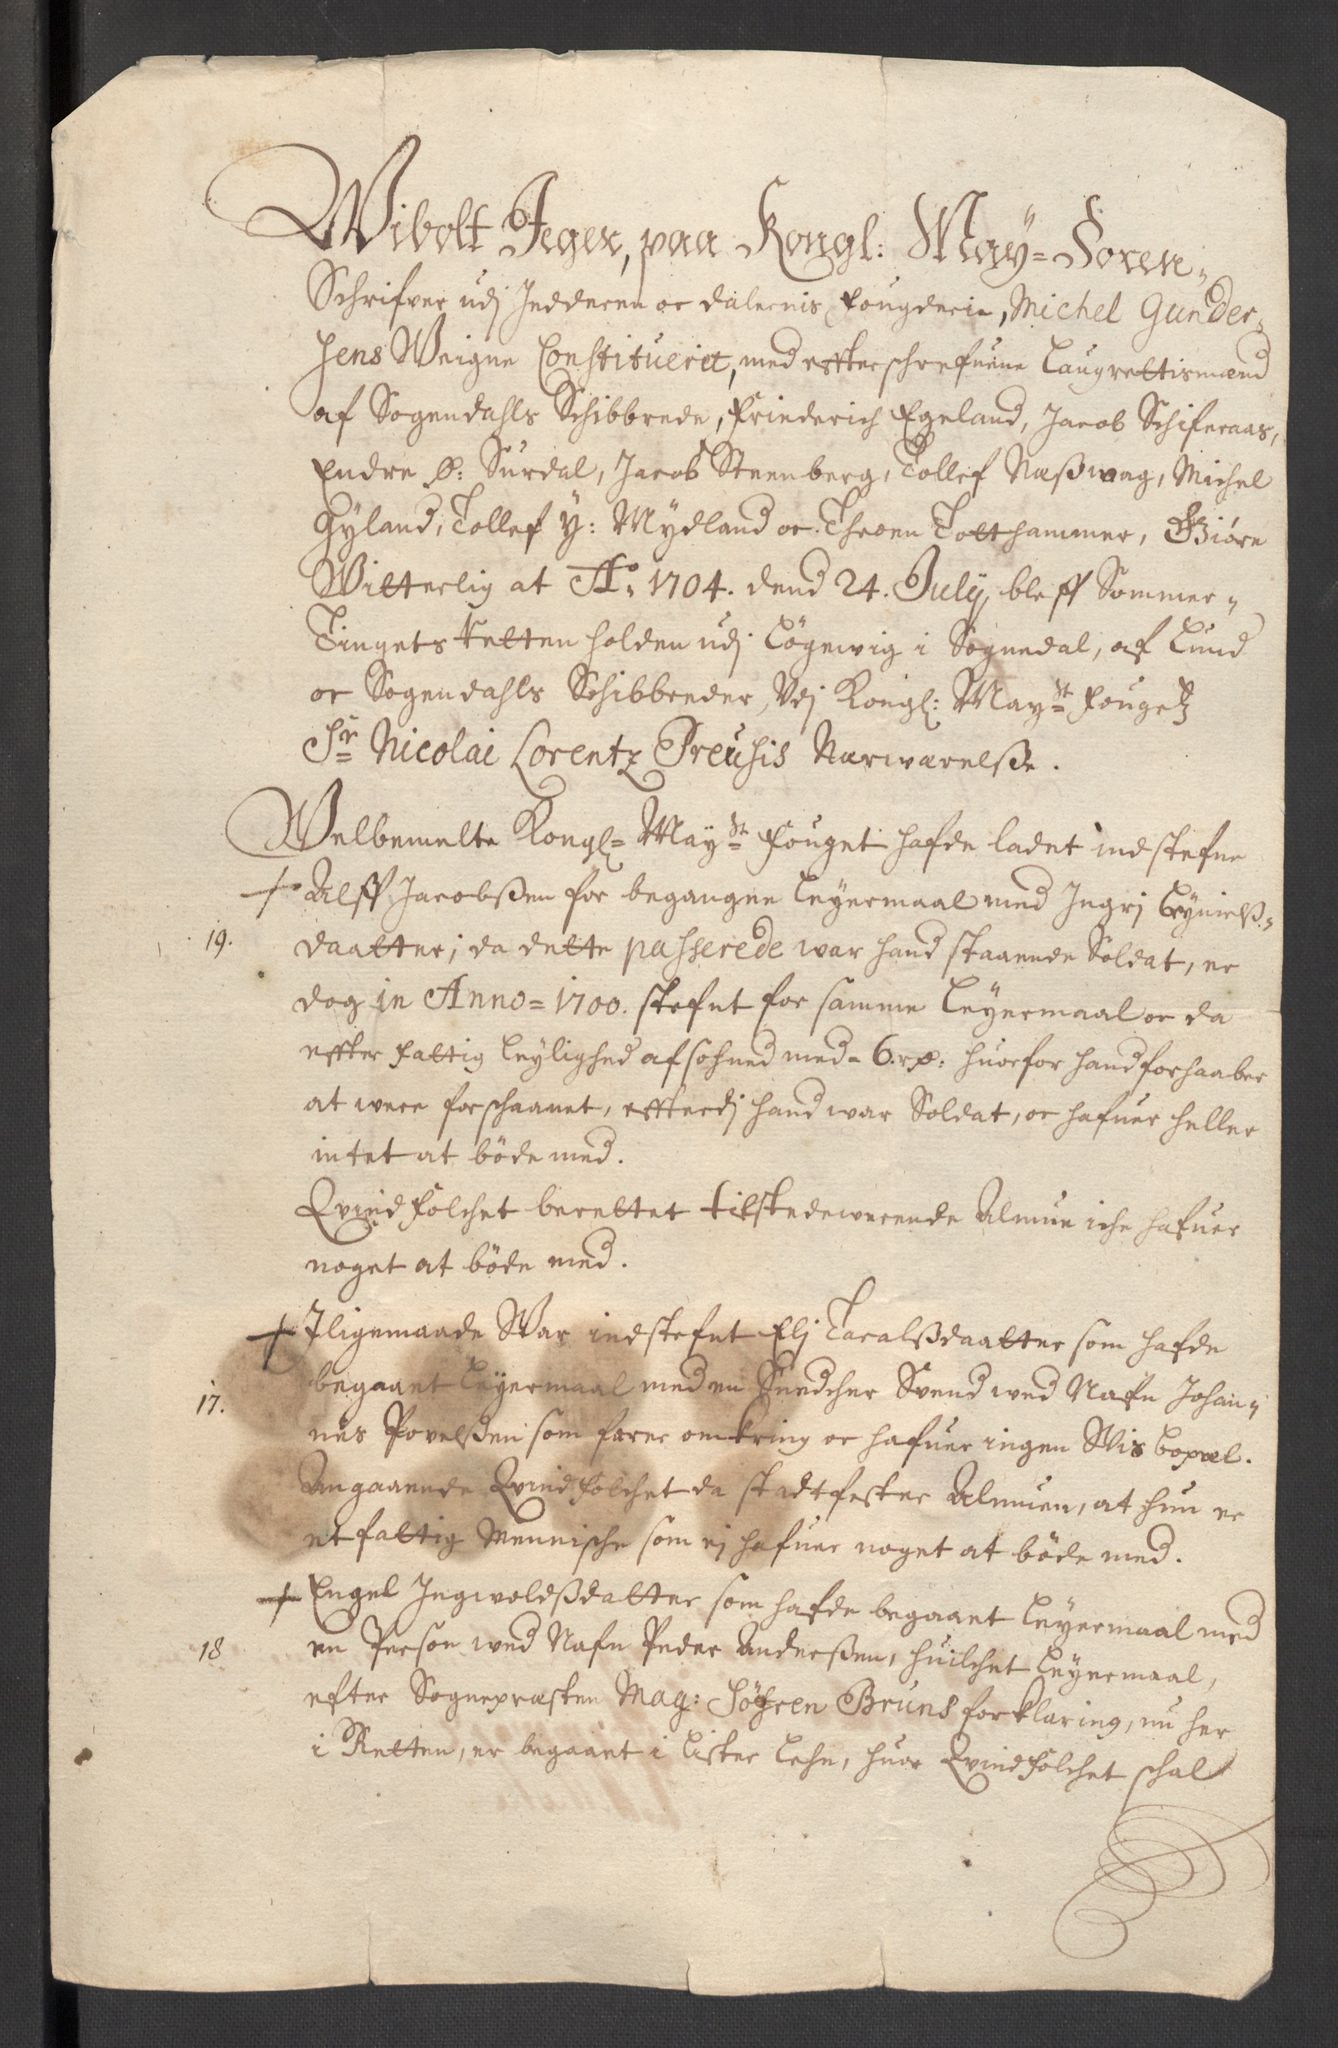 Wibolt Jeger, paa Kongl: May= Soren-
Schrifver udj Jedderen oc dalernis fougderie, Michel Gunder-
sens Weigne Constituerit, med effterschrefuene Laugrettismænd
af Sogendahls Schibbrede, Friederich Egeland, Jacob Schiferaas,
Endre Ø: Surdal, Jacob Steenberg, Tollef Næsswaag, Michel
Gyland, Tollef Y: Mydland oc Throen Totthammer, Giøre
Witterlig at Ao 1704. dend 24. July, bleff Sommer-
Tingets Retten holden udj Løgewig i Sognedal, af Lund
oc Sogendahls Schibbreder, Udj Kongl: Mayst fougetz
Sr Nicolai Lorentz Preusis Nærwærelsse.
Welbemelte Kongl= Mayst fouget hafde ladet indstefne
+ Alff Jacobssen for begangne Leyermaal med Ingrj Reynielss-
19. daatter; da dette passerede war hand staaende Soldat, er
dog in Anno= 1700. stefnt for samme Leyermaal oc da
effter fattig Leylighed afsohned med= 6.rx: huorfor hand forhaaber
at were forschaanet, effterdj hand war Soldat, oc hafuer heller
intet at böde med.
Qvindfolchet berettet tilstedewerende Almue iche hafuer
noget at böde med.
+ Iligemaade War indstefnt Elj Taralssdaatter som hafde
begaaet Leyermaal med en Snedcher Svend wed Nafn Johan-
17. nes Povelssen som farer omkring oc hafuer ingen Wis bopæl.
Angaaende Qvindfolchet da stadtfester Almuen, at hun er
et fattig Mennische som ej hafuer noget at böde med.
+ Engel Ingwoldssdatter som hafde begaaet Leyermaal med
18 en Person wed Nafn Peder Anderssen, huilchet Leyermaal,
efter Sognepræsten Mag: Söfren Bruns forklaring, nu her
i Retten, er begaaet i Lister Lehn, huor Qvindfolchet schal